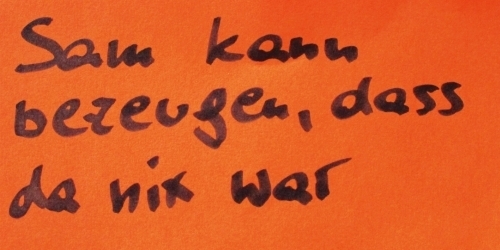 Sam kann
bezeugen, dass
da nix war